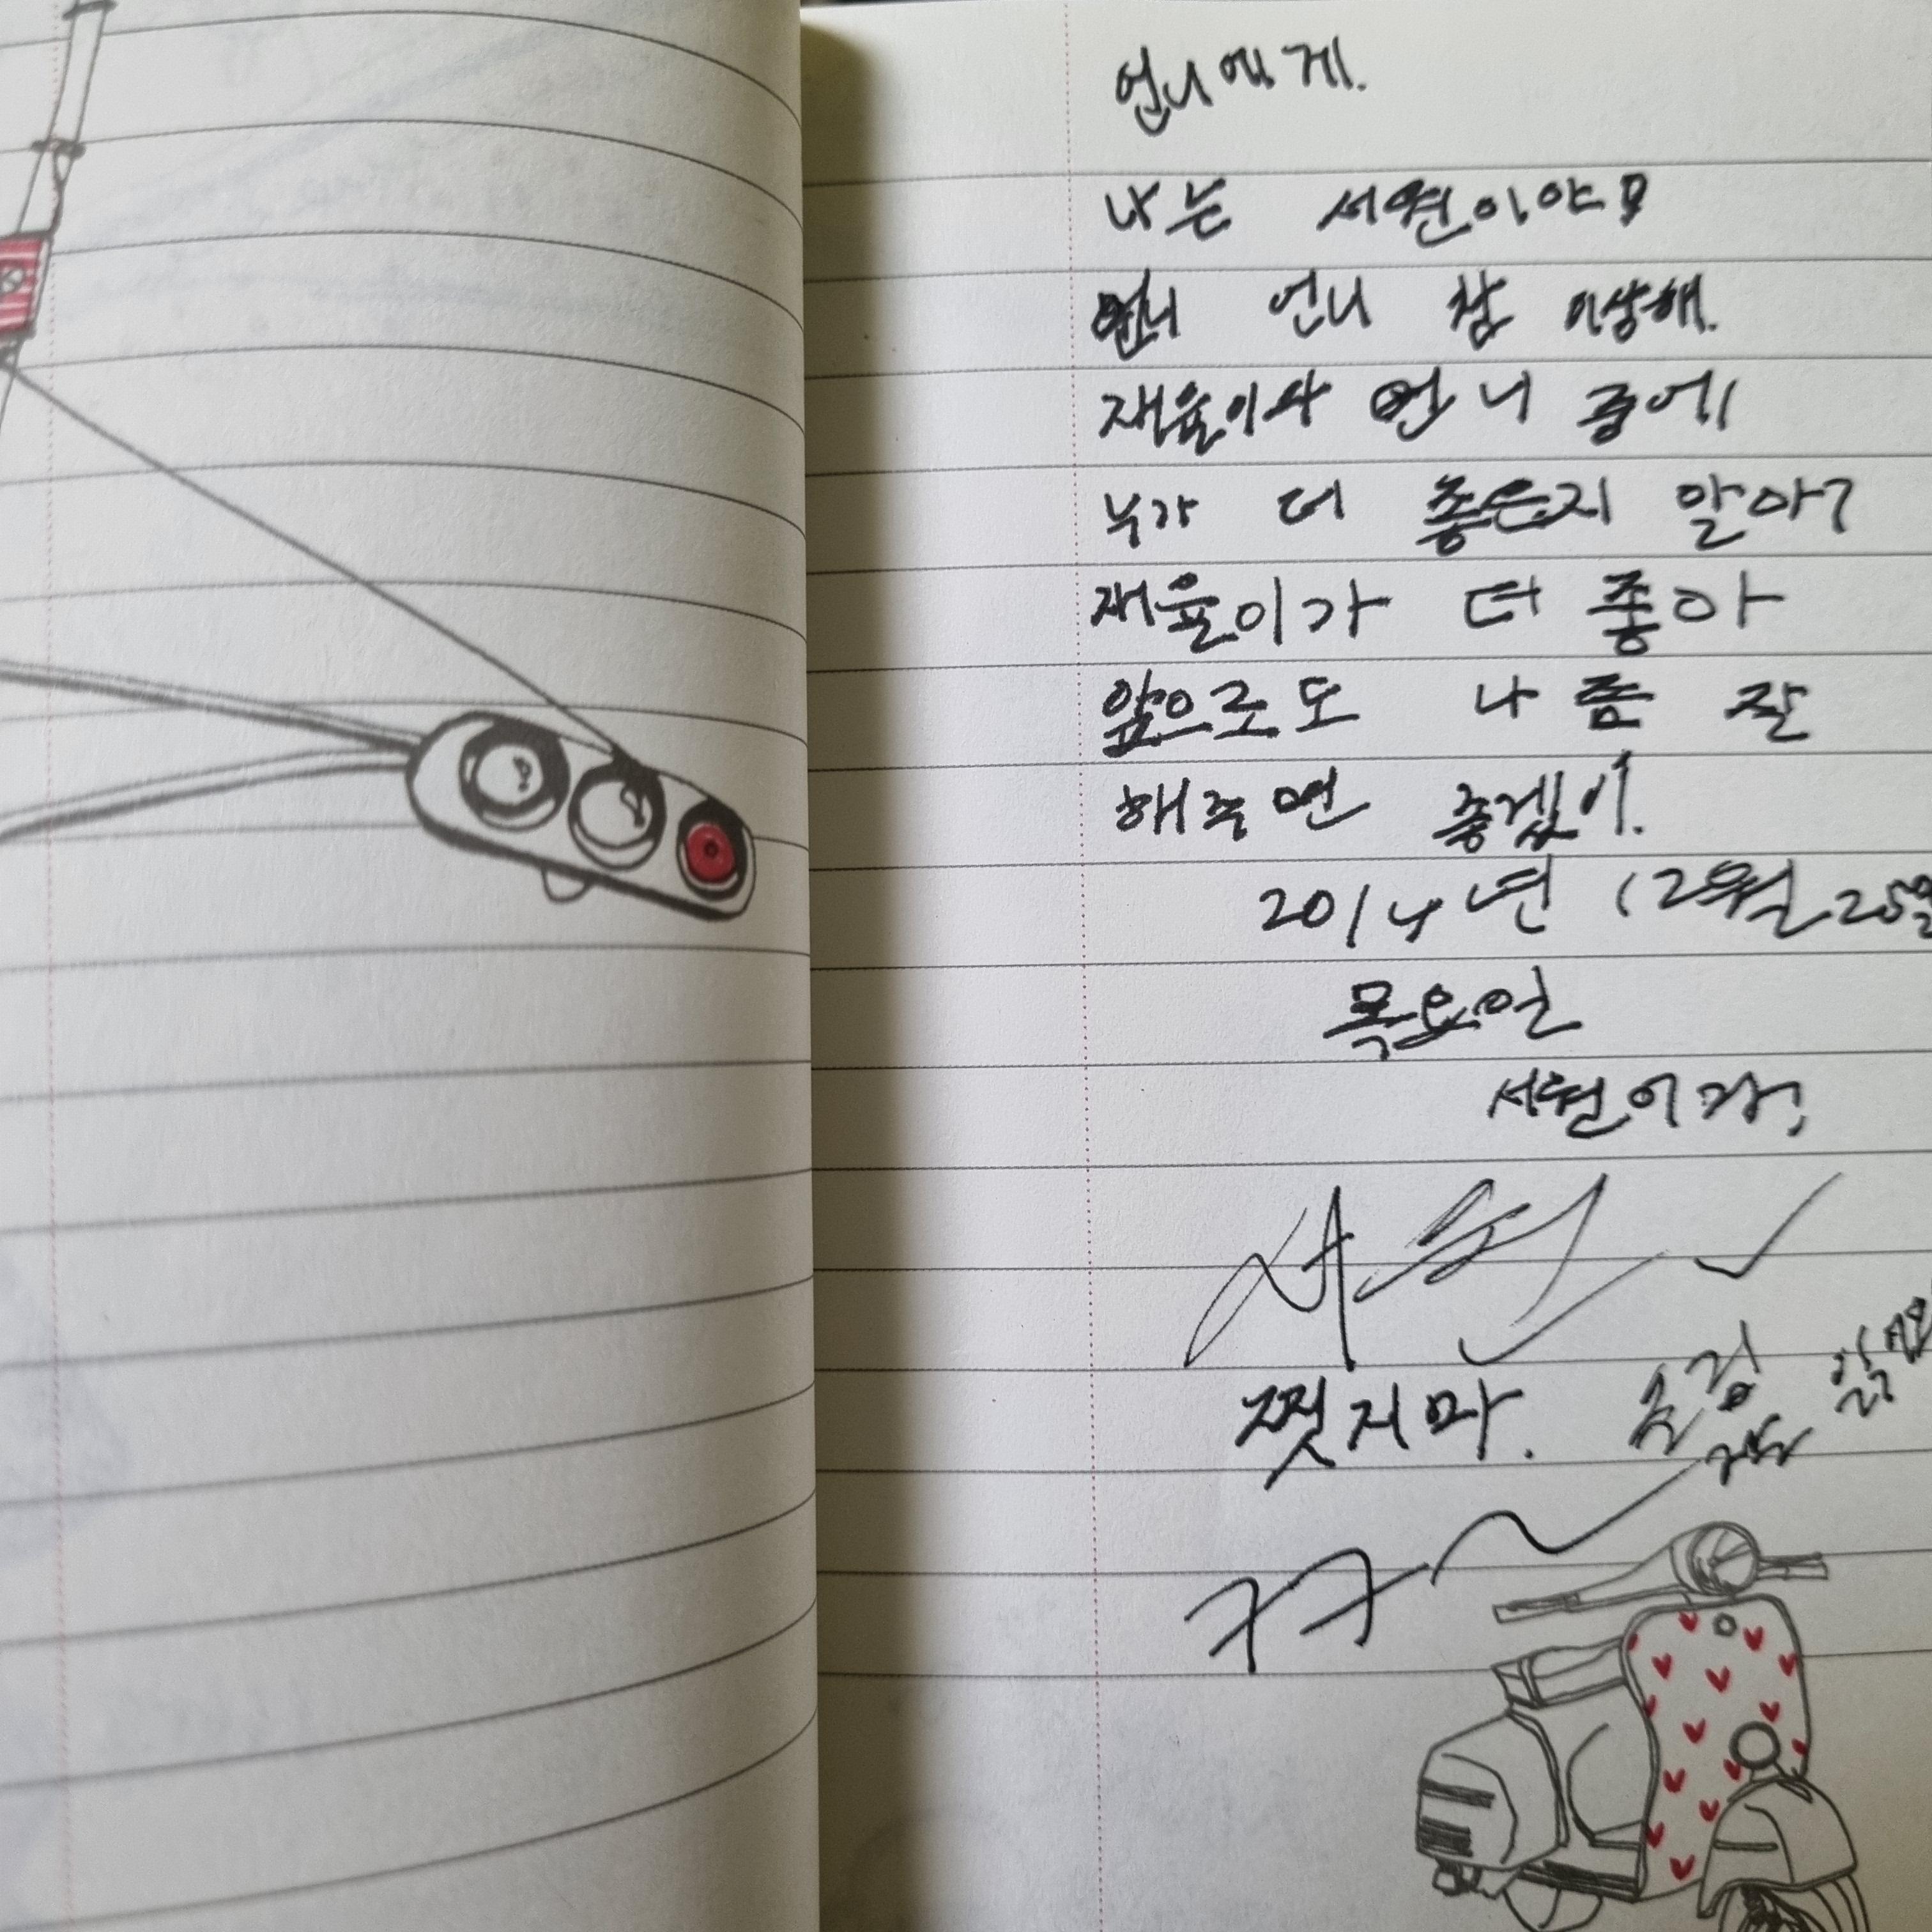 언니에게.
나는 서현이야!
언니 언니 참 이상해.
재율이와 언니 중에
누가 더 좋은지 알아?
재율이가 더 좋아
앞으로도 나 좀 잘
해주면 좋겠어.
2014년 12월 25일
목요일
서현이가!
서현
찢지마.